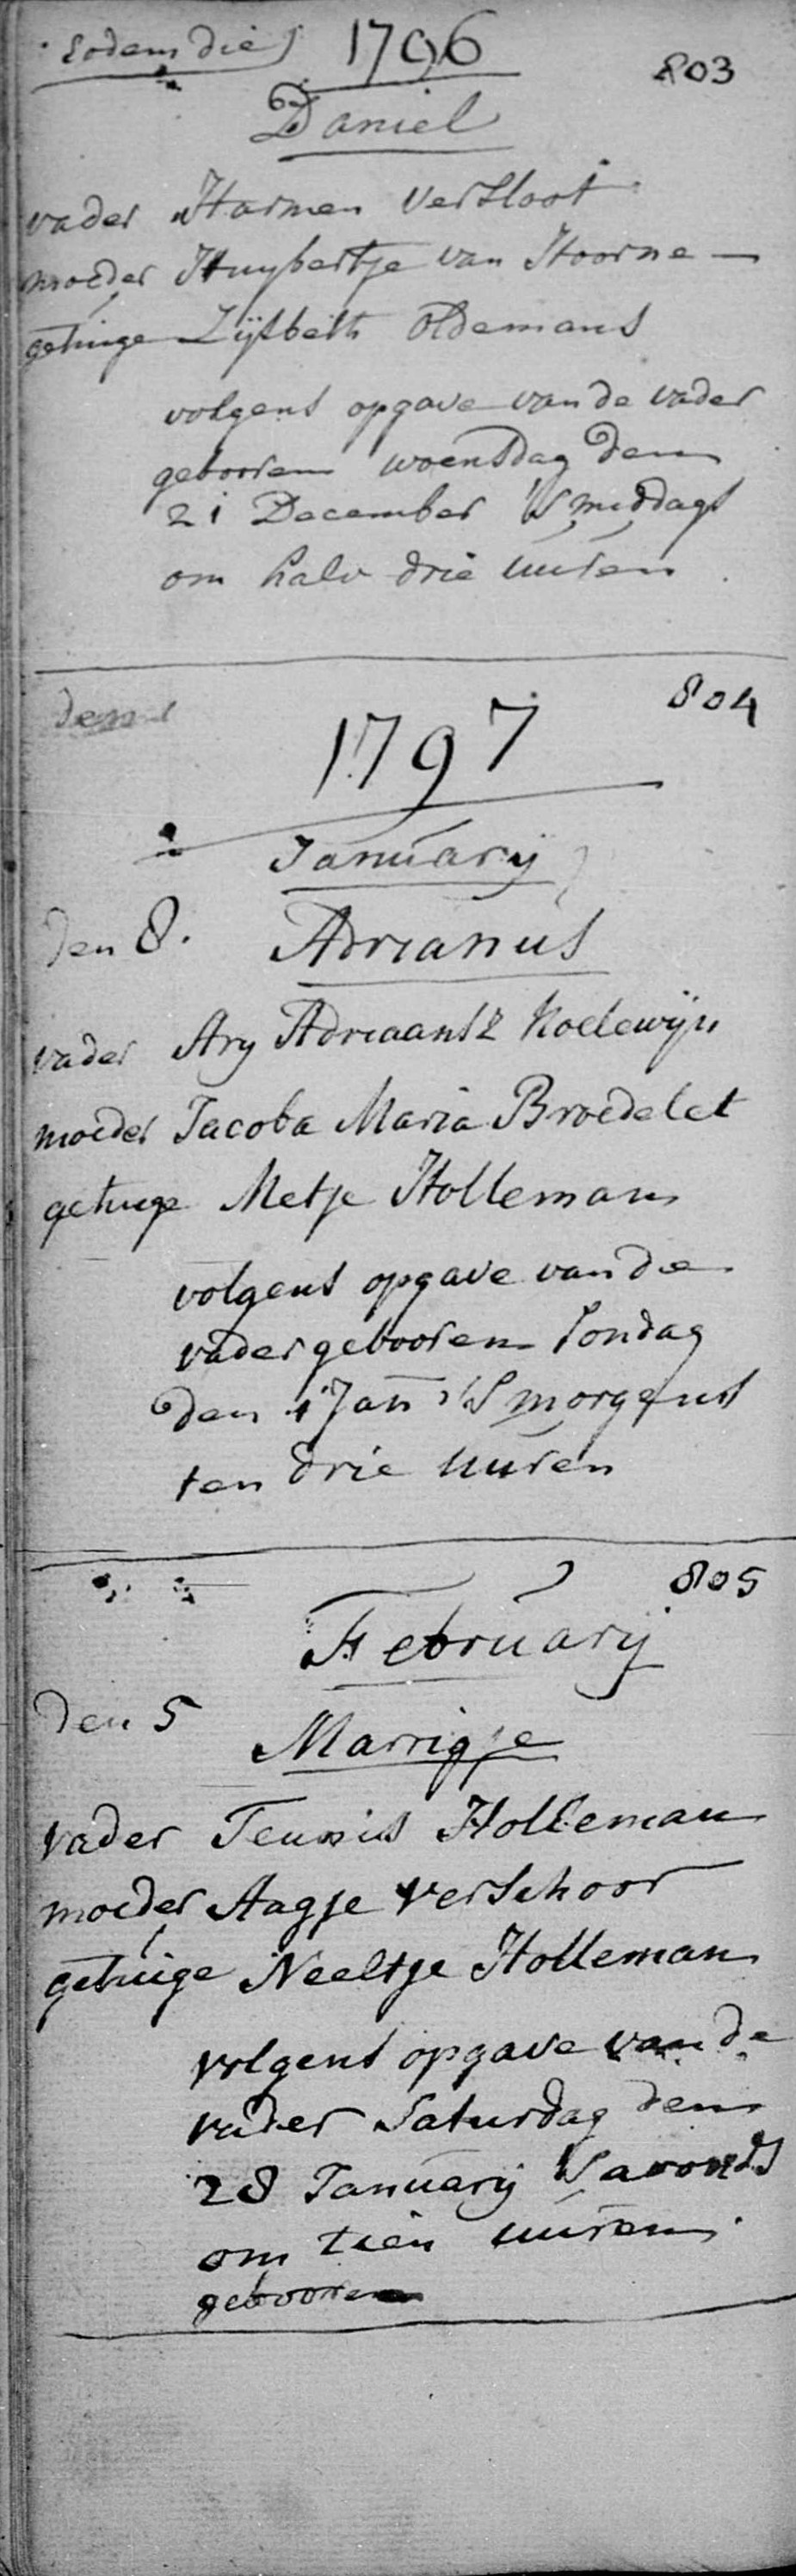 Eodem die 1796
803
Daniel
vader Harmen Versloot
moeder Huybertje van Hoorne
getuige Lijsbeth Oldemans
volgens opgave van de vader
gebooren woensdag den
21 December 's middags
om half drie uuren
den 804
1797
January
den 8. Adrianus
vader Ary Adriaansz Koelewijn
moeder Jacoba Maria Broedelet
getuige Metje Holleman
volgens opgave van de
vader gebooren Sondag
den 1 Jan 's morgens
ten drie uuren
805
February
den 5
Marrigje
vader Teunis Holleman
moeder Aagje Verschoor
getuige Neeltje Holleman
volgens opgave van de
vader Saturdag den
28 January 's avonds
om tien uuren
gebooren